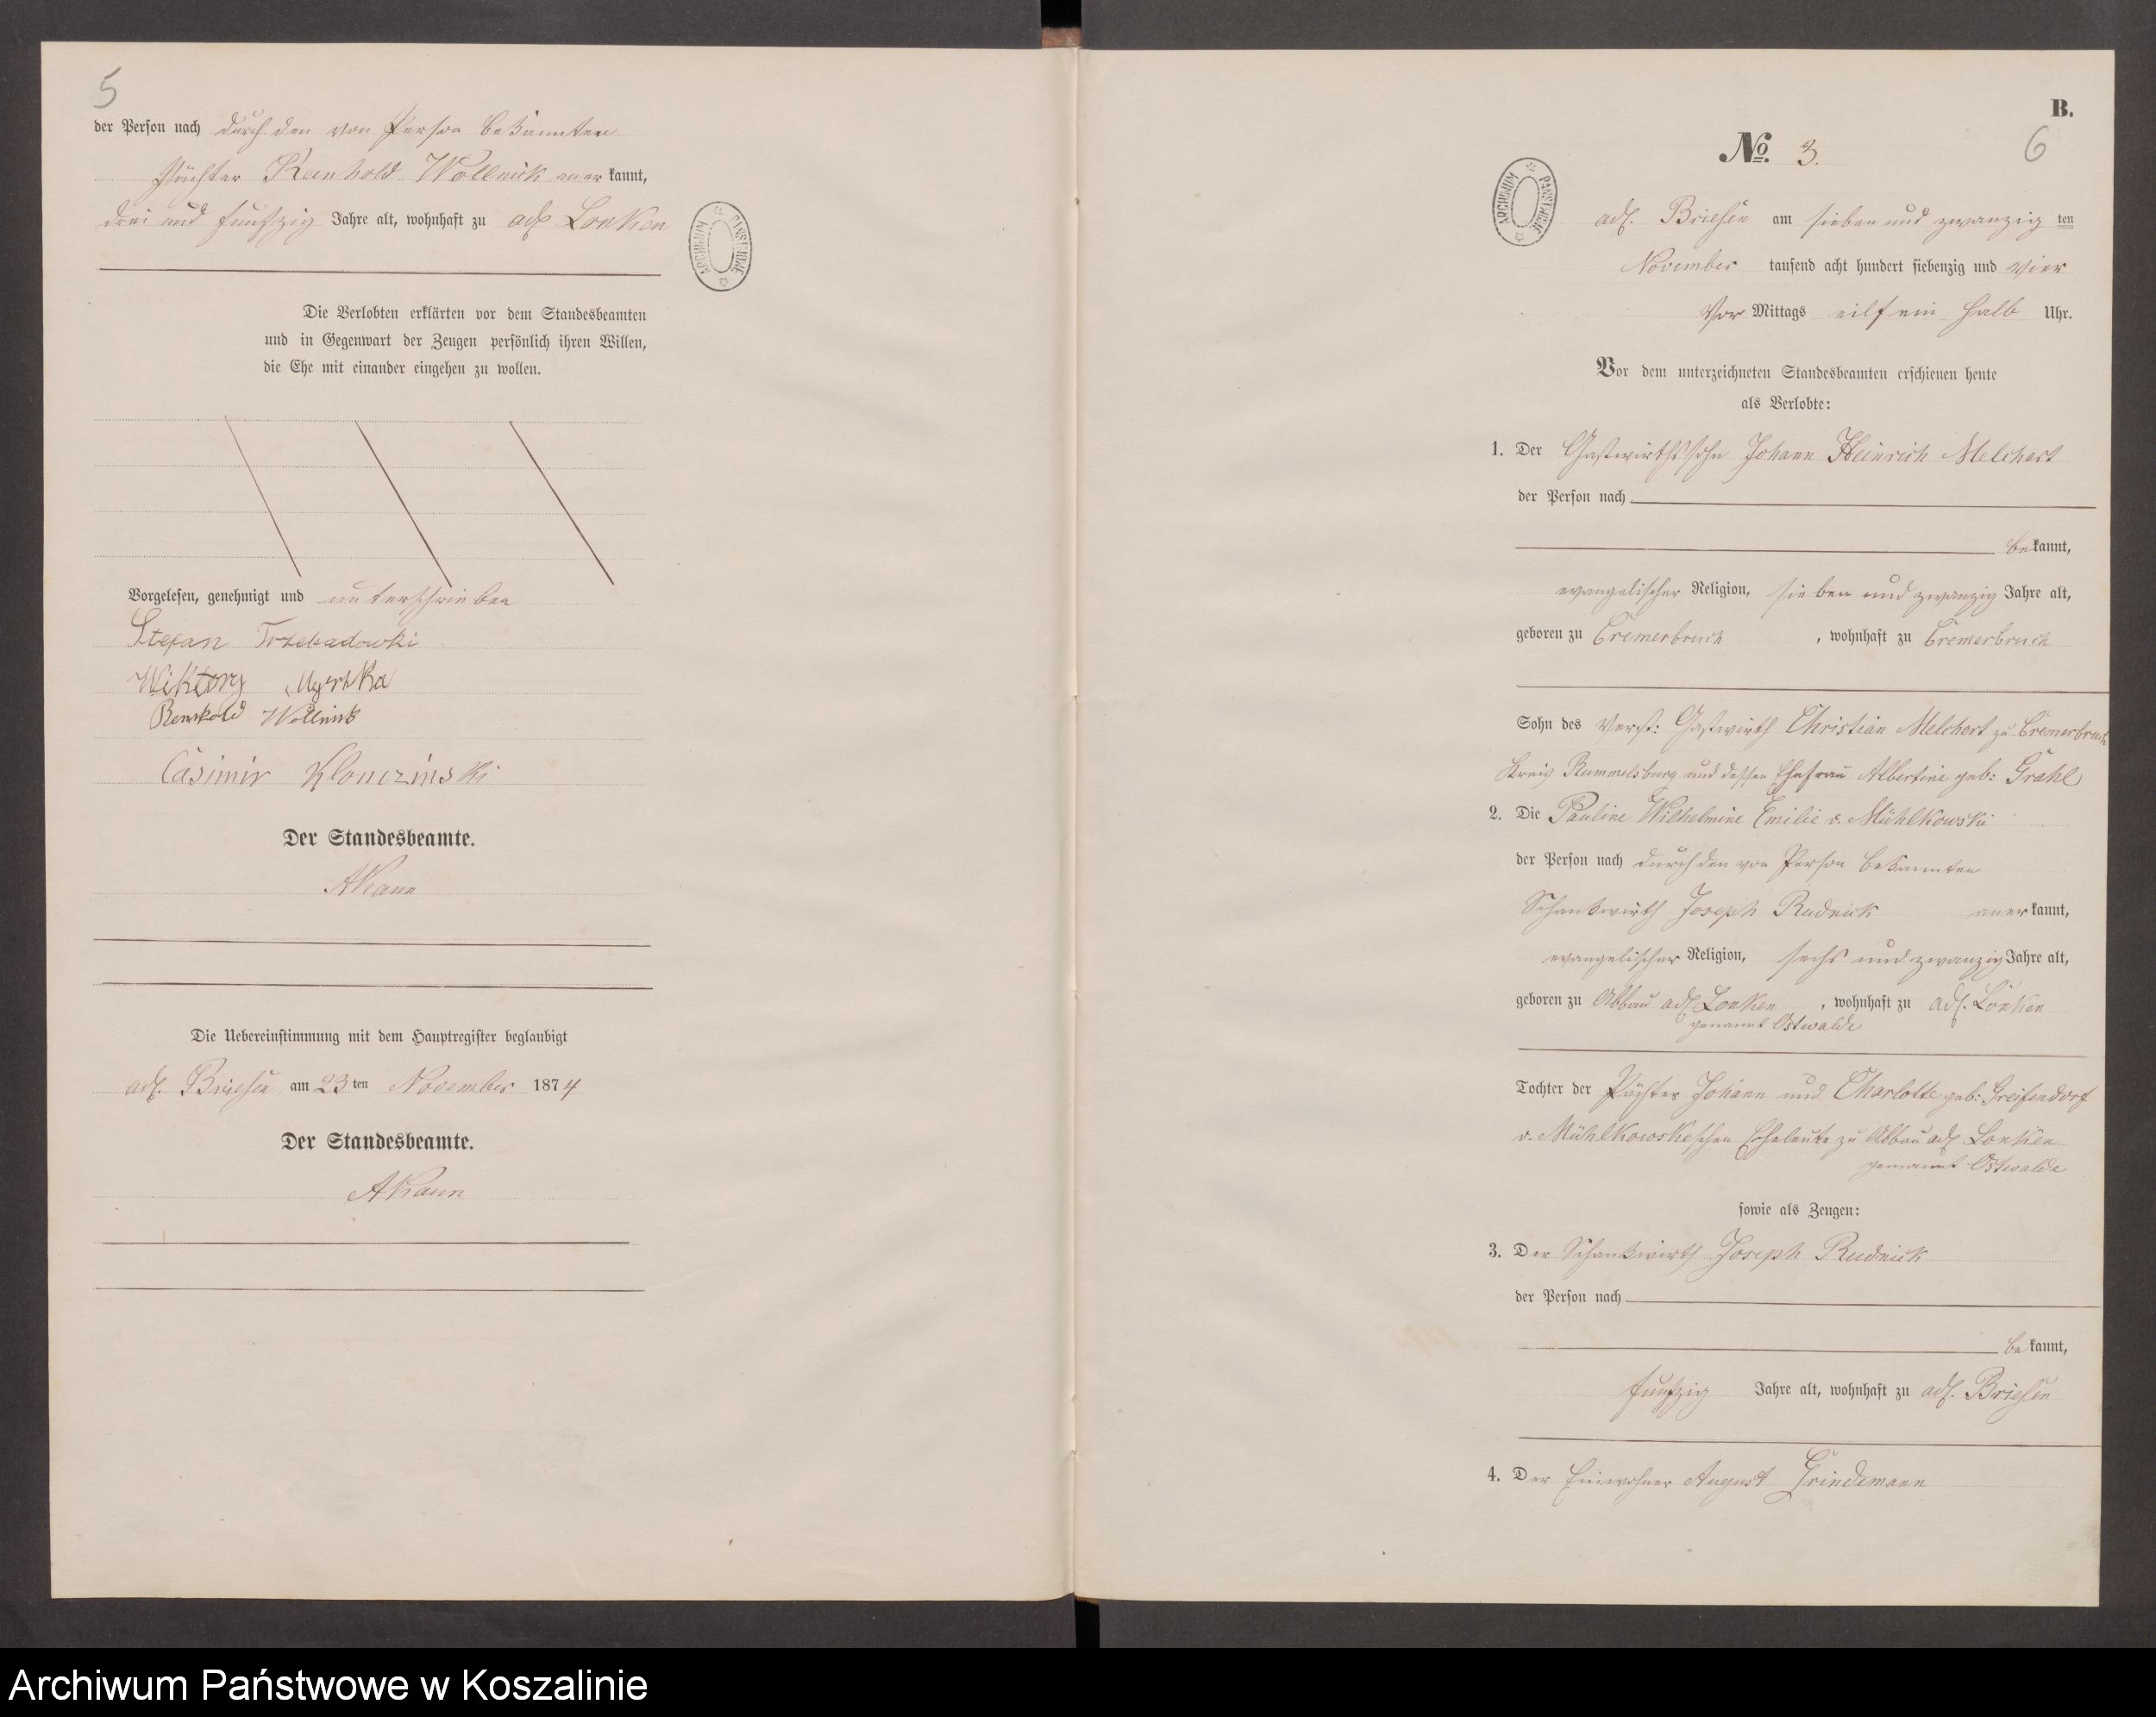 5
der Person nach durch den von Person bekannten
Pächter Reinhold Wollnick anerkannt,
drei und funfzig Jahre alt, wohnhaft zu adl Lonken
ARCHIWUM PAŃSTWOWE
Die Verlobten erklärten vor dem Standesbeamten
und in Gegenwart der Zeugen persönlich ihren Willen,
die Ehe mit einander eingehen zu wollen.
Vorgelesen, genehmigt und unterschrieben
Stefan
Wiktory
Reinhold Wollnick
Casimir Klonczinski
Der Standesbeamte.
Die Uebereinstimmung mit dem Hauptregister beglaubigt
adl. Briesen am 23 ten November 1874
Der Standesbeamte.
B.
6
No. 3.
ARCHIWUM PAŃSTWOWE
adl. Briesen am sieben und zwanzig ten
November tausend acht hundert siebenzig und vier
Vor Mittags eilf ein halb Uhr.
Vor dem unterzeichneten Standesbeamten erschienen heute
als Verlobte:
1. Der Gastwirthssohn Johann Heinrich Melchert
der Person nach
bekannt,
evangelischer Religion, sieben und zwanzig Jahre alt,
geboren zu Cremerbruch, wohnhaft zu Cremerbruch
Sohn des verst: Gastwirth Christian Melchert zu Cremerbruch
Kreis Rummelsburg und dessen Ehefrau Albertine geb: Grahl
2. Die Pauline Wilhelmine Emilie v. Mühlkowski
der Person nach durch den von Person bekannten
Schankwirth Joseph Rudnick anerkannt,
evangelischer Religion, sechs und zwanzig Jahre alt,
geboren zu Abbau adl Lonken, wohnhaft zu adl. Lonken
genannt Ostwalde
Tochter der Pächter Johann und Charlotte geb: Greifendorf
v. Mühlkowskischen Eheleute zu Abbau adl Lonken
genannt Ostwalde
sowie als Zeugen:
3. Der Schankwirth Joseph Rudnick
der Person nach
bekannt,
funfzig Jahre alt, wohnhaft zu adl. Briesen
4. Der Einwohner August Grindemann
Archiwum Państwowe w Koszalinie